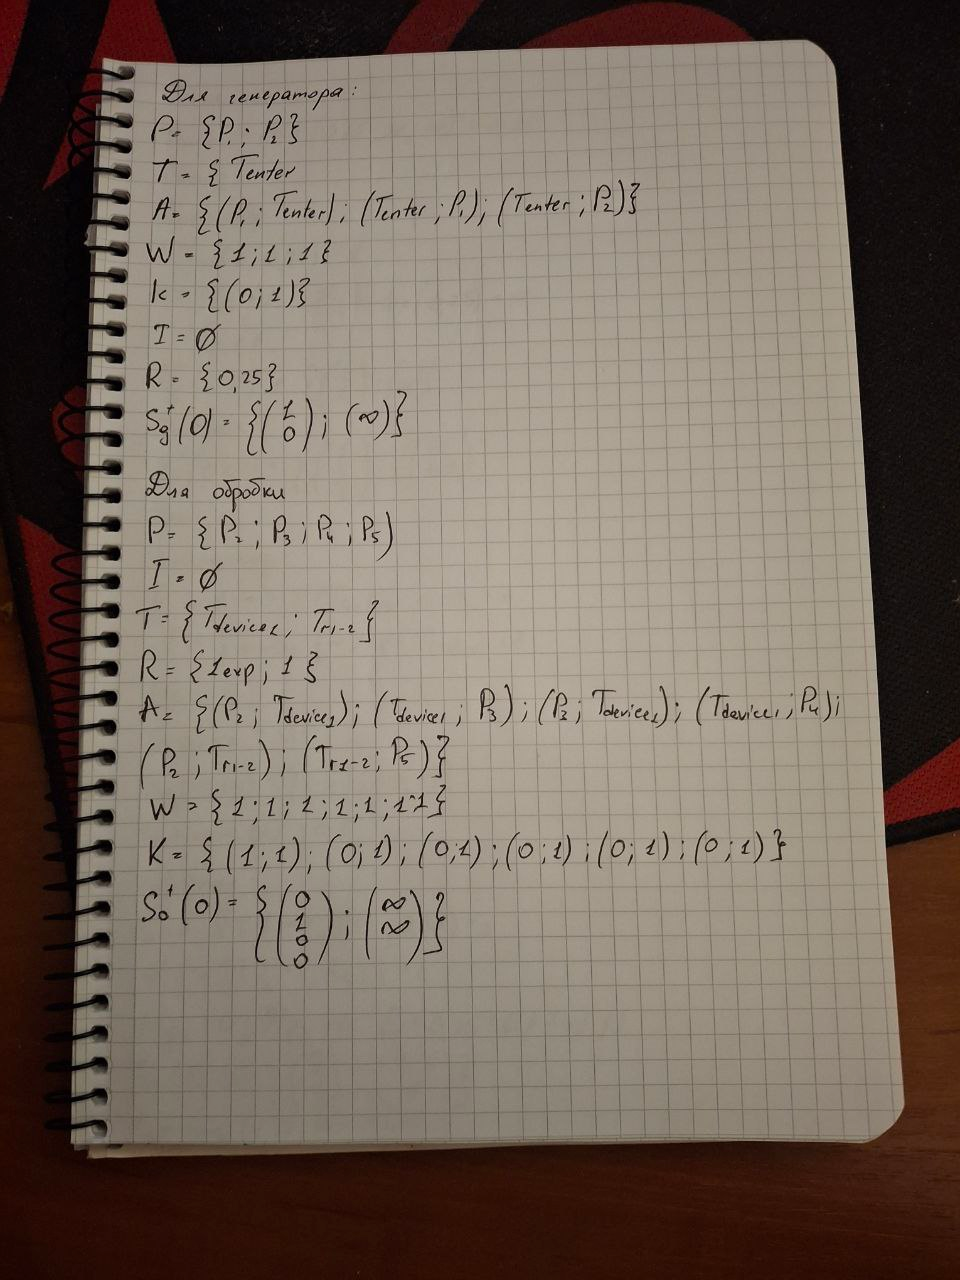 Для генератора:
P = {P₁ ; P₂}
T = { Tenter
A = {(P₁ ; Tenter) ; (Tenter ; P₁) ; (Tenter ; P₂)}
W = {1 ; 1 ; 1}
K = {(0 ; 1)}
I = ∅
R = {0,25}
Sg⁺(0) = {(1 0) ; (∞)}
Для обробки
P = {P₂ ; P₃ ; P₄ ; P₅)
I = ∅
T = {Tdevice1 ; Tr1-2}
R = {1exp ; 1}
A = {(P₂ ; Tdevice1) ; (Tdevice1 ; P₃) ; (P₃ ; Tdevice1) ; (Tdevice1 ; P₄) ;
(P₂ ; Tr1-2) ; (Tr1-2 ; P₅)}
W = {1 ; 1 ; 1 ; 1 ; 1 ; 1 1}
K = {(1 ; 1) ; (0 ; 1) ; (0,1) ; (0 ; 1) ; (0 ; 1) ; (0 ; 1)}
S₀⁺(0) = {(0 1 0 0) ; (∞ ∞)}